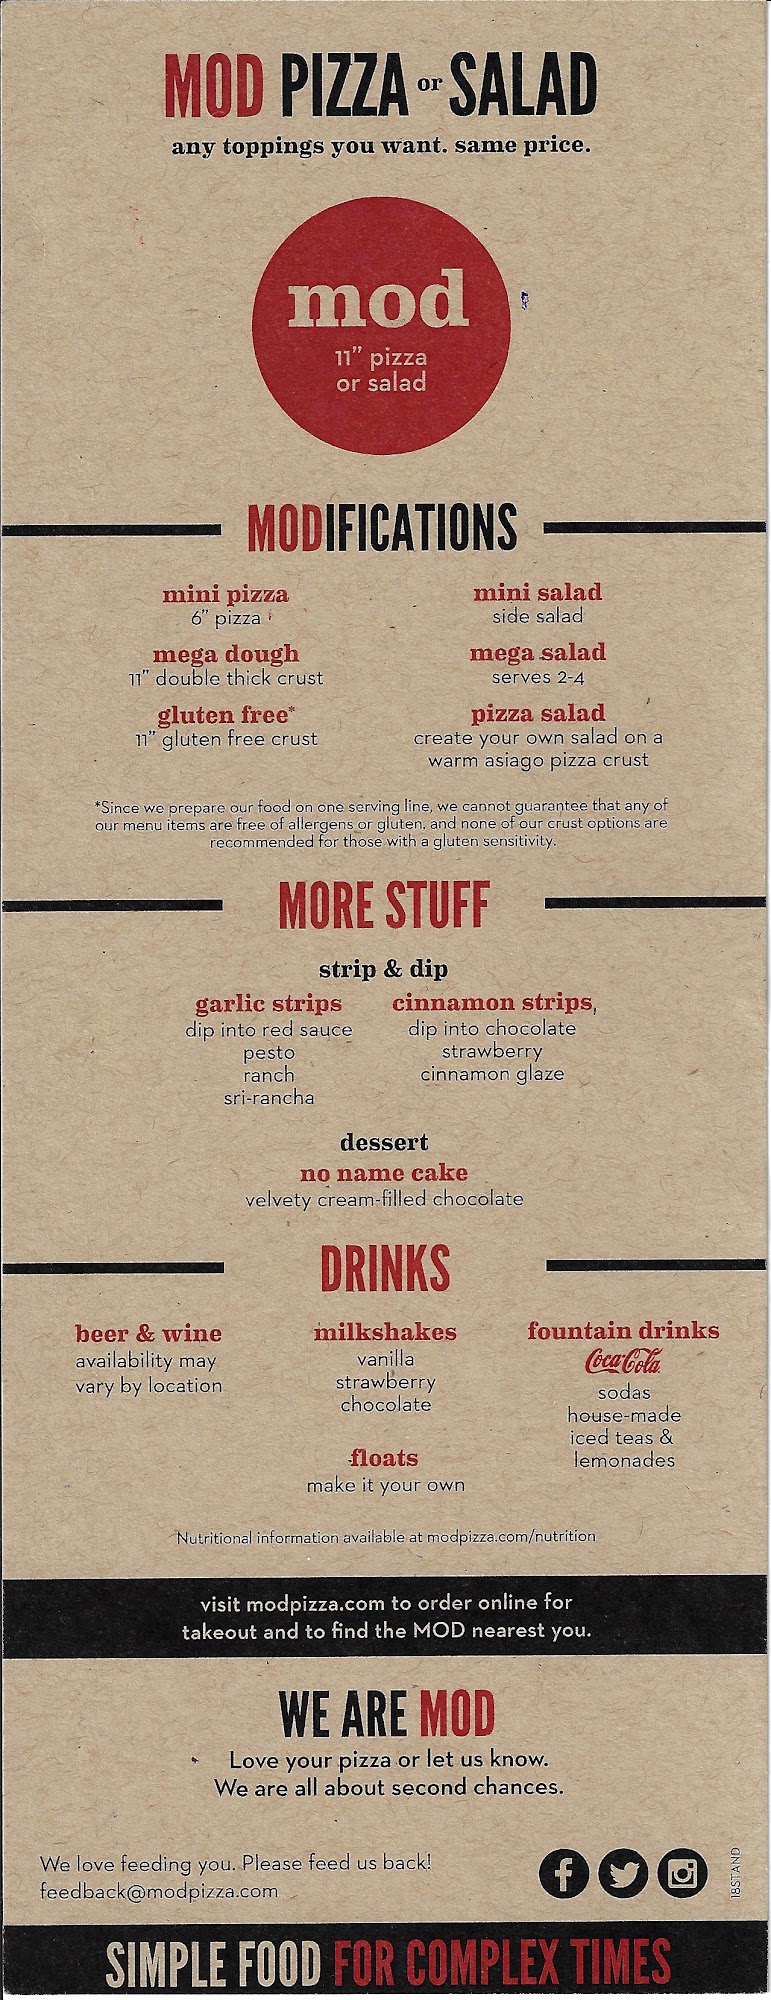 MOD PIZZA or SALAD
any toppings you want. same price.
mod
11" pizza
or salad
MODIFICATIONS
mini pizza
6" pizza
mega dough
11" double thick crust
gluten free*
11" gluten free crust
mini salad
side salad
mega salad
serves 2-4
pizza salad
create your own salad on a
warm asiago pizza crust
*Since we prepare our food on one serving line, we cannot guarantee that any of
our menu items are free of allergens or gluten, and none of our crust options are
recommended for those with a gluten sensitivity.
MORE STUFF
strip & dip
garlic strips
dip into red sauce
pesto
ranch
sri-rancha
cinnamon strips,
dip into chocolate
strawberry
cinnamon glaze
dessert
no name cake
velvety cream-filled chocolate
DRINKS
beer & wine
availability may
vary by location
milkshakes
vanilla
strawberry
chocolate
floats
make it your own
fountain drinks
Coca-Cola
sodas
house-made
iced teas &
lemonades
Nutritional information available at modpizza.com/nutrition
visit modpizza.com to order online for
takeout and to find the MOD nearest you.
WE ARE MOD
Love your pizza or let us know.
We are all about second chances.
We love feeding you. Please feed us back!
feedback@modpizza.com
18STAND
SIMPLE FOOD FOR COMPLEX TIMES